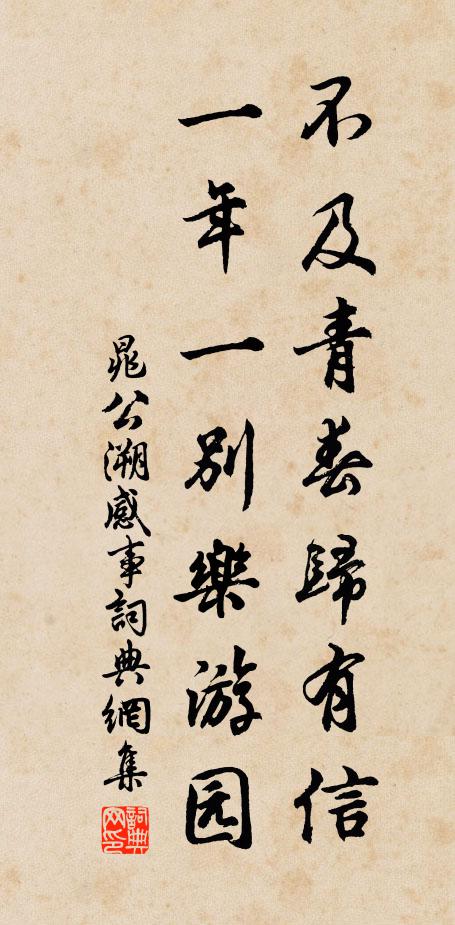 不及青春歸有信
一年一別樂游园
晁公溯感事詞典網集
詞典網印